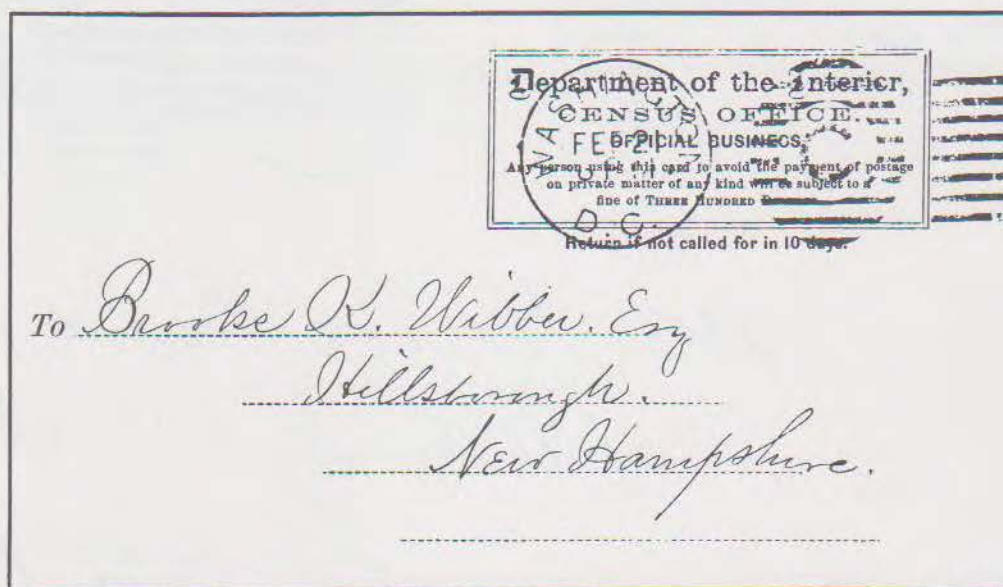 Department of the Interior,
CENSUS OFFICE.
OFFICIAL BUSINESS,
Any person using this card to avoid the payment of postage
on private matter of any kind will be subject to a
fine of THREE HUNDRED
Return if not called for in 10 days.
WASHINGTON
FEB 21
D.C.
To Brooks K. Webber. Esq
Hillsborough.
New Hampshire.